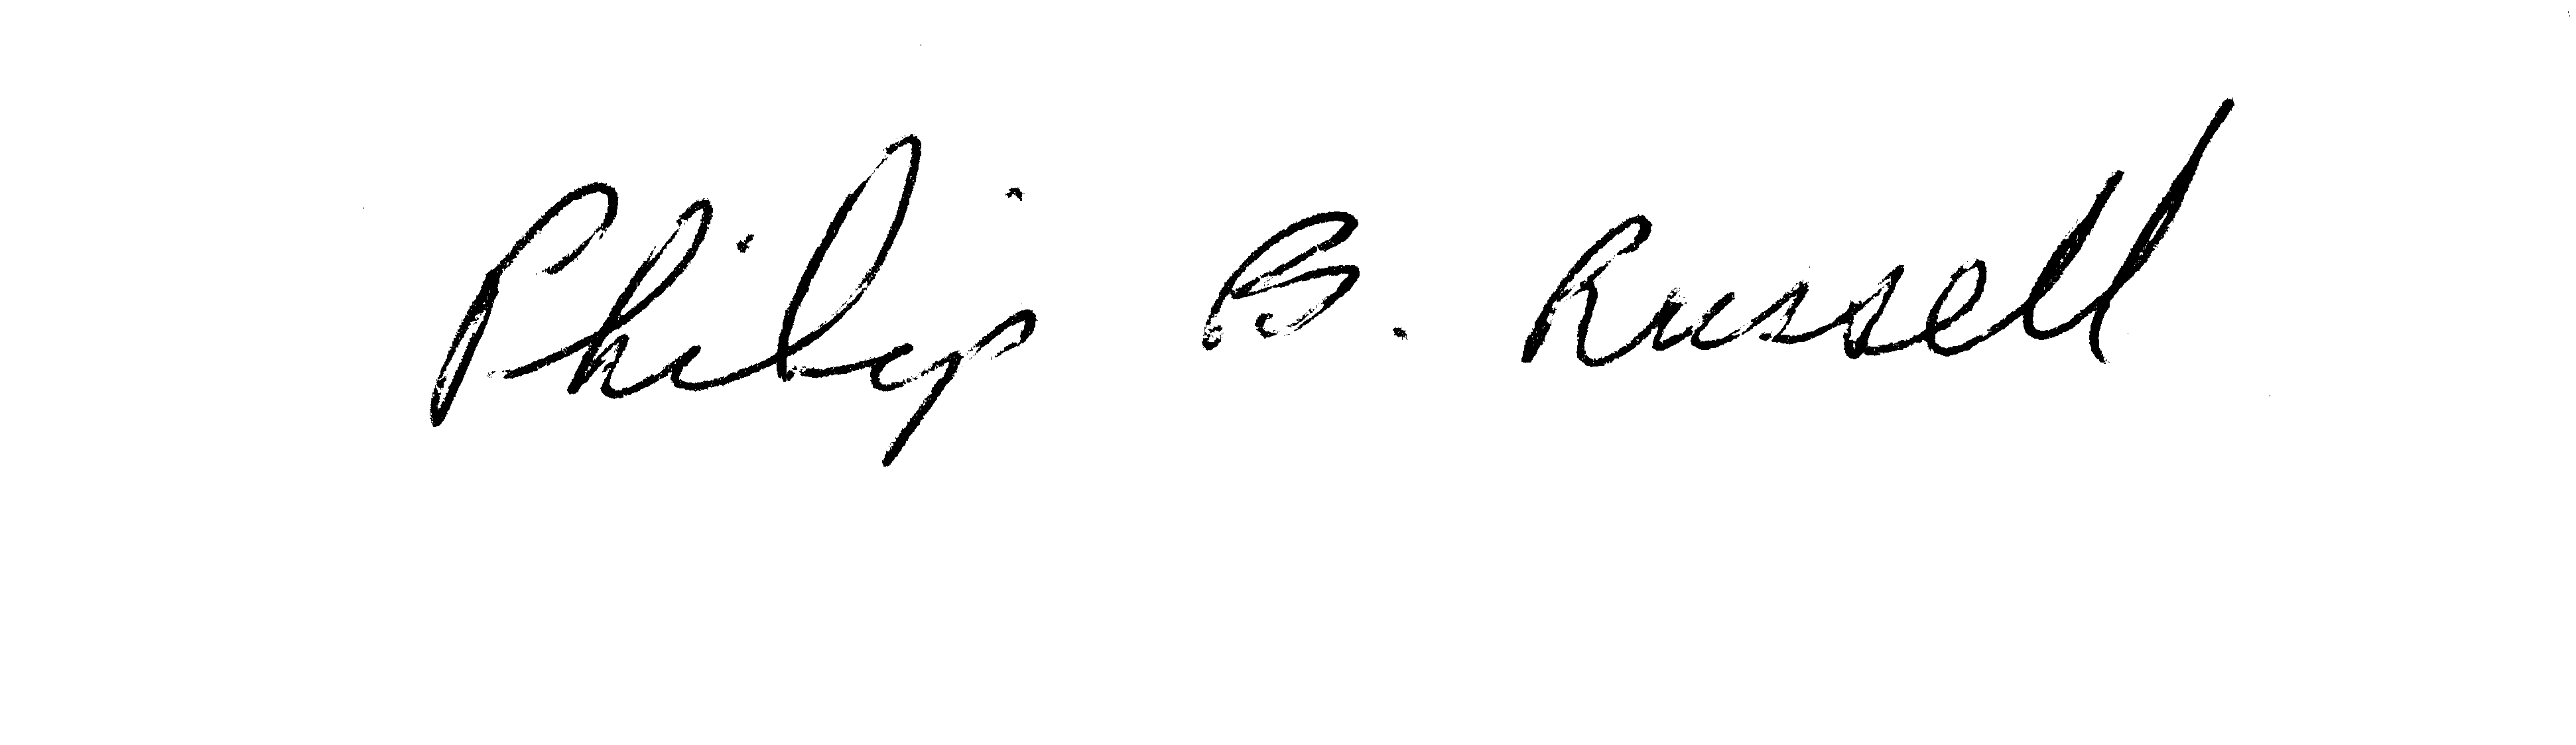 Philip B. Russell